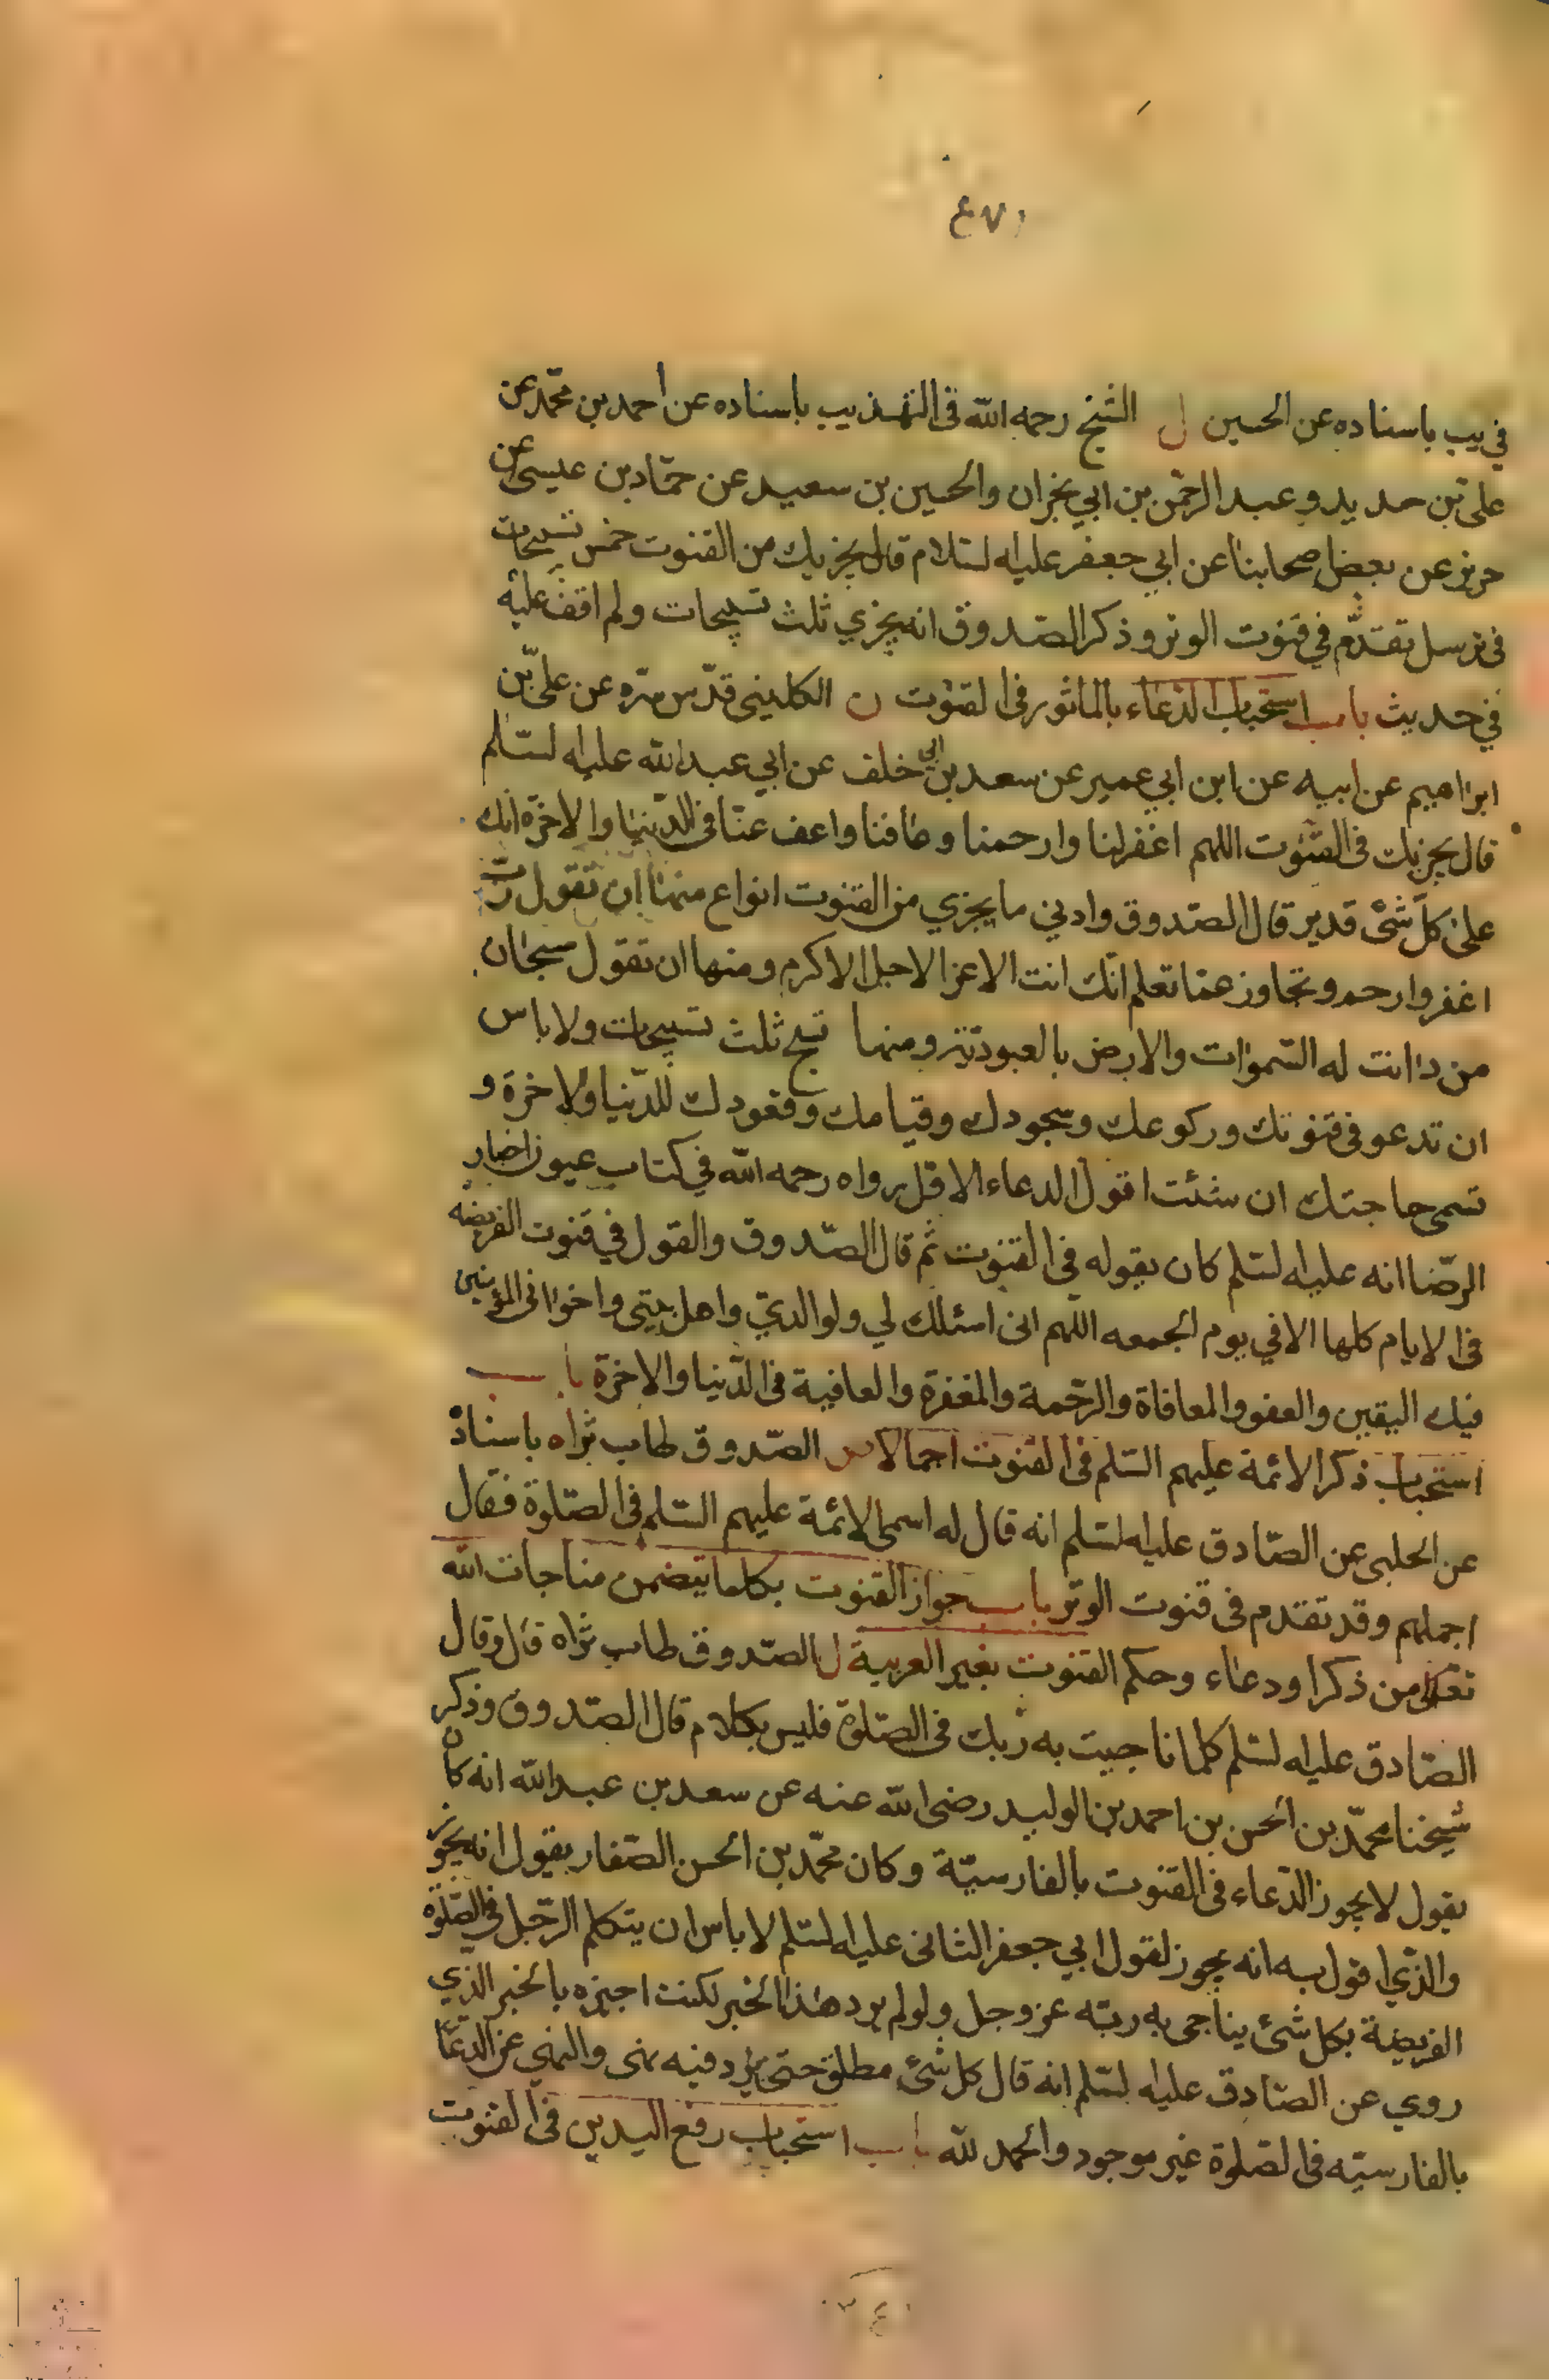 ٤٧١
في يب باسناده عن الحسين ل الشيخ رحمه الله في التهذيب باسناده عن احمد بن محمد عن
علي بن حديد وعبد الرحمن بن ابي نجران والحسين بن سعيد عن حماد بن عيسى عن
حريز عن بعض اصحابنا عن ابي جعفر عليه السلام قال يجزيك من القنوت خمس تسبيحات
في ترسل تقدم في قنوت الوتر وذكر الصدوق انه يجزي ثلث تسبيحات ولم اقف عليه
في حديث باب استحباب الدعاء بالماثور في القنوت ن الكليني قدس سره عن علي بن
ابراهيم عن ابيه عن ابن ابي عمير عن سعد بن ابي خلف عن ابي عبد الله عليه السلم
قال يجزيك في القنوت اللهم اغفر لنا وارحمنا وعافنا واعف عنا في الدنيا والاخرة انك
على كل شئ قدير قال الصدوق وادني ما يجزي من القنوت انواع منها ان تقول رب
اغفر وارحم وتجاوز عما تعلم انك انت الاعز الاجل الاكرم ومنها ان تقول سبحان
من دانت له السموات والارض بالعبودية ومنها تسبح ثلث تسبيحات ولا باس
ان تدعو في قنوتك وركوعك وسجودك وقيامك وقعودك للدنيا والاخرة و
تسمى حاجتك ان شئت اقول الدعاء الاول رواه رحمه الله في كتاب عيون اخبار
الرضا انه عليه السلم كان يقوله في القنوت ثم قال الصدوق والقول في قنوت الفريضه
في الايام كلها الا في يوم الجمعه اللهم اني اسئلك لي ولوالدي واهل بيتي واخواني المؤمنين
فيك اليقين والعفو والمعافاة والرحمة والمغفرة والعافية في الدنيا والاخرة باب
استحباب ذكر الائمة عليهم السلم في القنوت اجمالا الصدوق طاب ثراه باسناده
عن الحلبي عن الصادق عليه السلم انه قال له اسمى الائمة عليهم السلم في الصلوة فقال
اجملهم وقد تقدم في قنوت الوتر باب جواز القنوت بكلما يتضمن مناجات الله
تعالى من ذكر او دعاء وحكم القنوت بغير العربية ل الصدوق طاب ثراه قال وقال
الصادق عليه السلم كلما ناجيت به ربك في الصلوة فليس بكلام قال الصدوق وذكر
شيخنا محمد بن الحسن بن احمد بن الوليد رضى الله عنه عن سعد بن عبد الله انه كان
يقول لا يجوز الدعاء في القنوت بالفارسية وكان محمد بن الحسن الصفار يقول انه يجوز
والذي اقول به انه يجوز لقول ابي جعفر الثاني عليه السلم لا باس ان يتكلم الرجل في الصلوة
الفريضة بكل شئ يناجى به ربه عز وجل ولو لم يرد هذا الخبر لكنت اجيزه بالخبر الذي
روي عن الصادق عليه السلم انه قال كل شئ مطلق حتى يرد فيه نهى والنهي عن الدعاء
بالفارسيه في الصلوة غير موجود والحمد لله باب استحباب رفع اليدين في القنوت